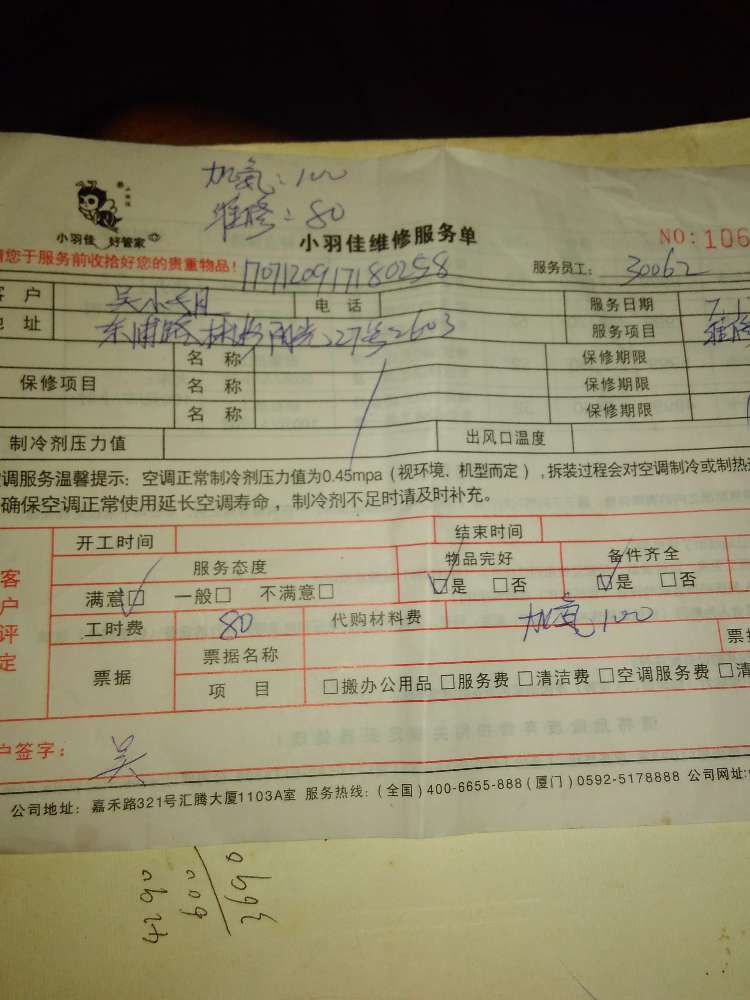 加氟：100
维修：80
小羽佳 好管家
小羽佳维修服务单
NO：106
请您于服务前收拾好您的贵重物品！
1707120917180258
服务员工： 30062
客 户 吴小 电 话 服务日期 7.1
地 址 东浦路 阳光227号2603 服务项目 维修
保修项目 名 称 保修期限
名 称 保修期限
名 称 保修期限
制冷剂压力值 出风口温度
调服务温馨提示：空调正常制冷剂压力值为0.45mpa（视环境、机型而定），拆装过程会对空调制冷或制热
确保空调正常使用延长空调寿命，制冷剂不足时请及时补充。
客户评定
开工时间 结束时间
服务态度 物品完好 备件齐全
满意□ 一般□ 不满意□ □是 □否 □是 □否
工时费 80 代购材料费 加氟100
票据 票据名称 票
项 目 □搬办公用品 □服务费 □清洁费 □空调服务费 □清
户签字： 吴
公司地址：嘉禾路321号汇腾大厦1103A室 服务热线：(全国) 400-6655-888 (厦门) 0592-5178888 公司网址: